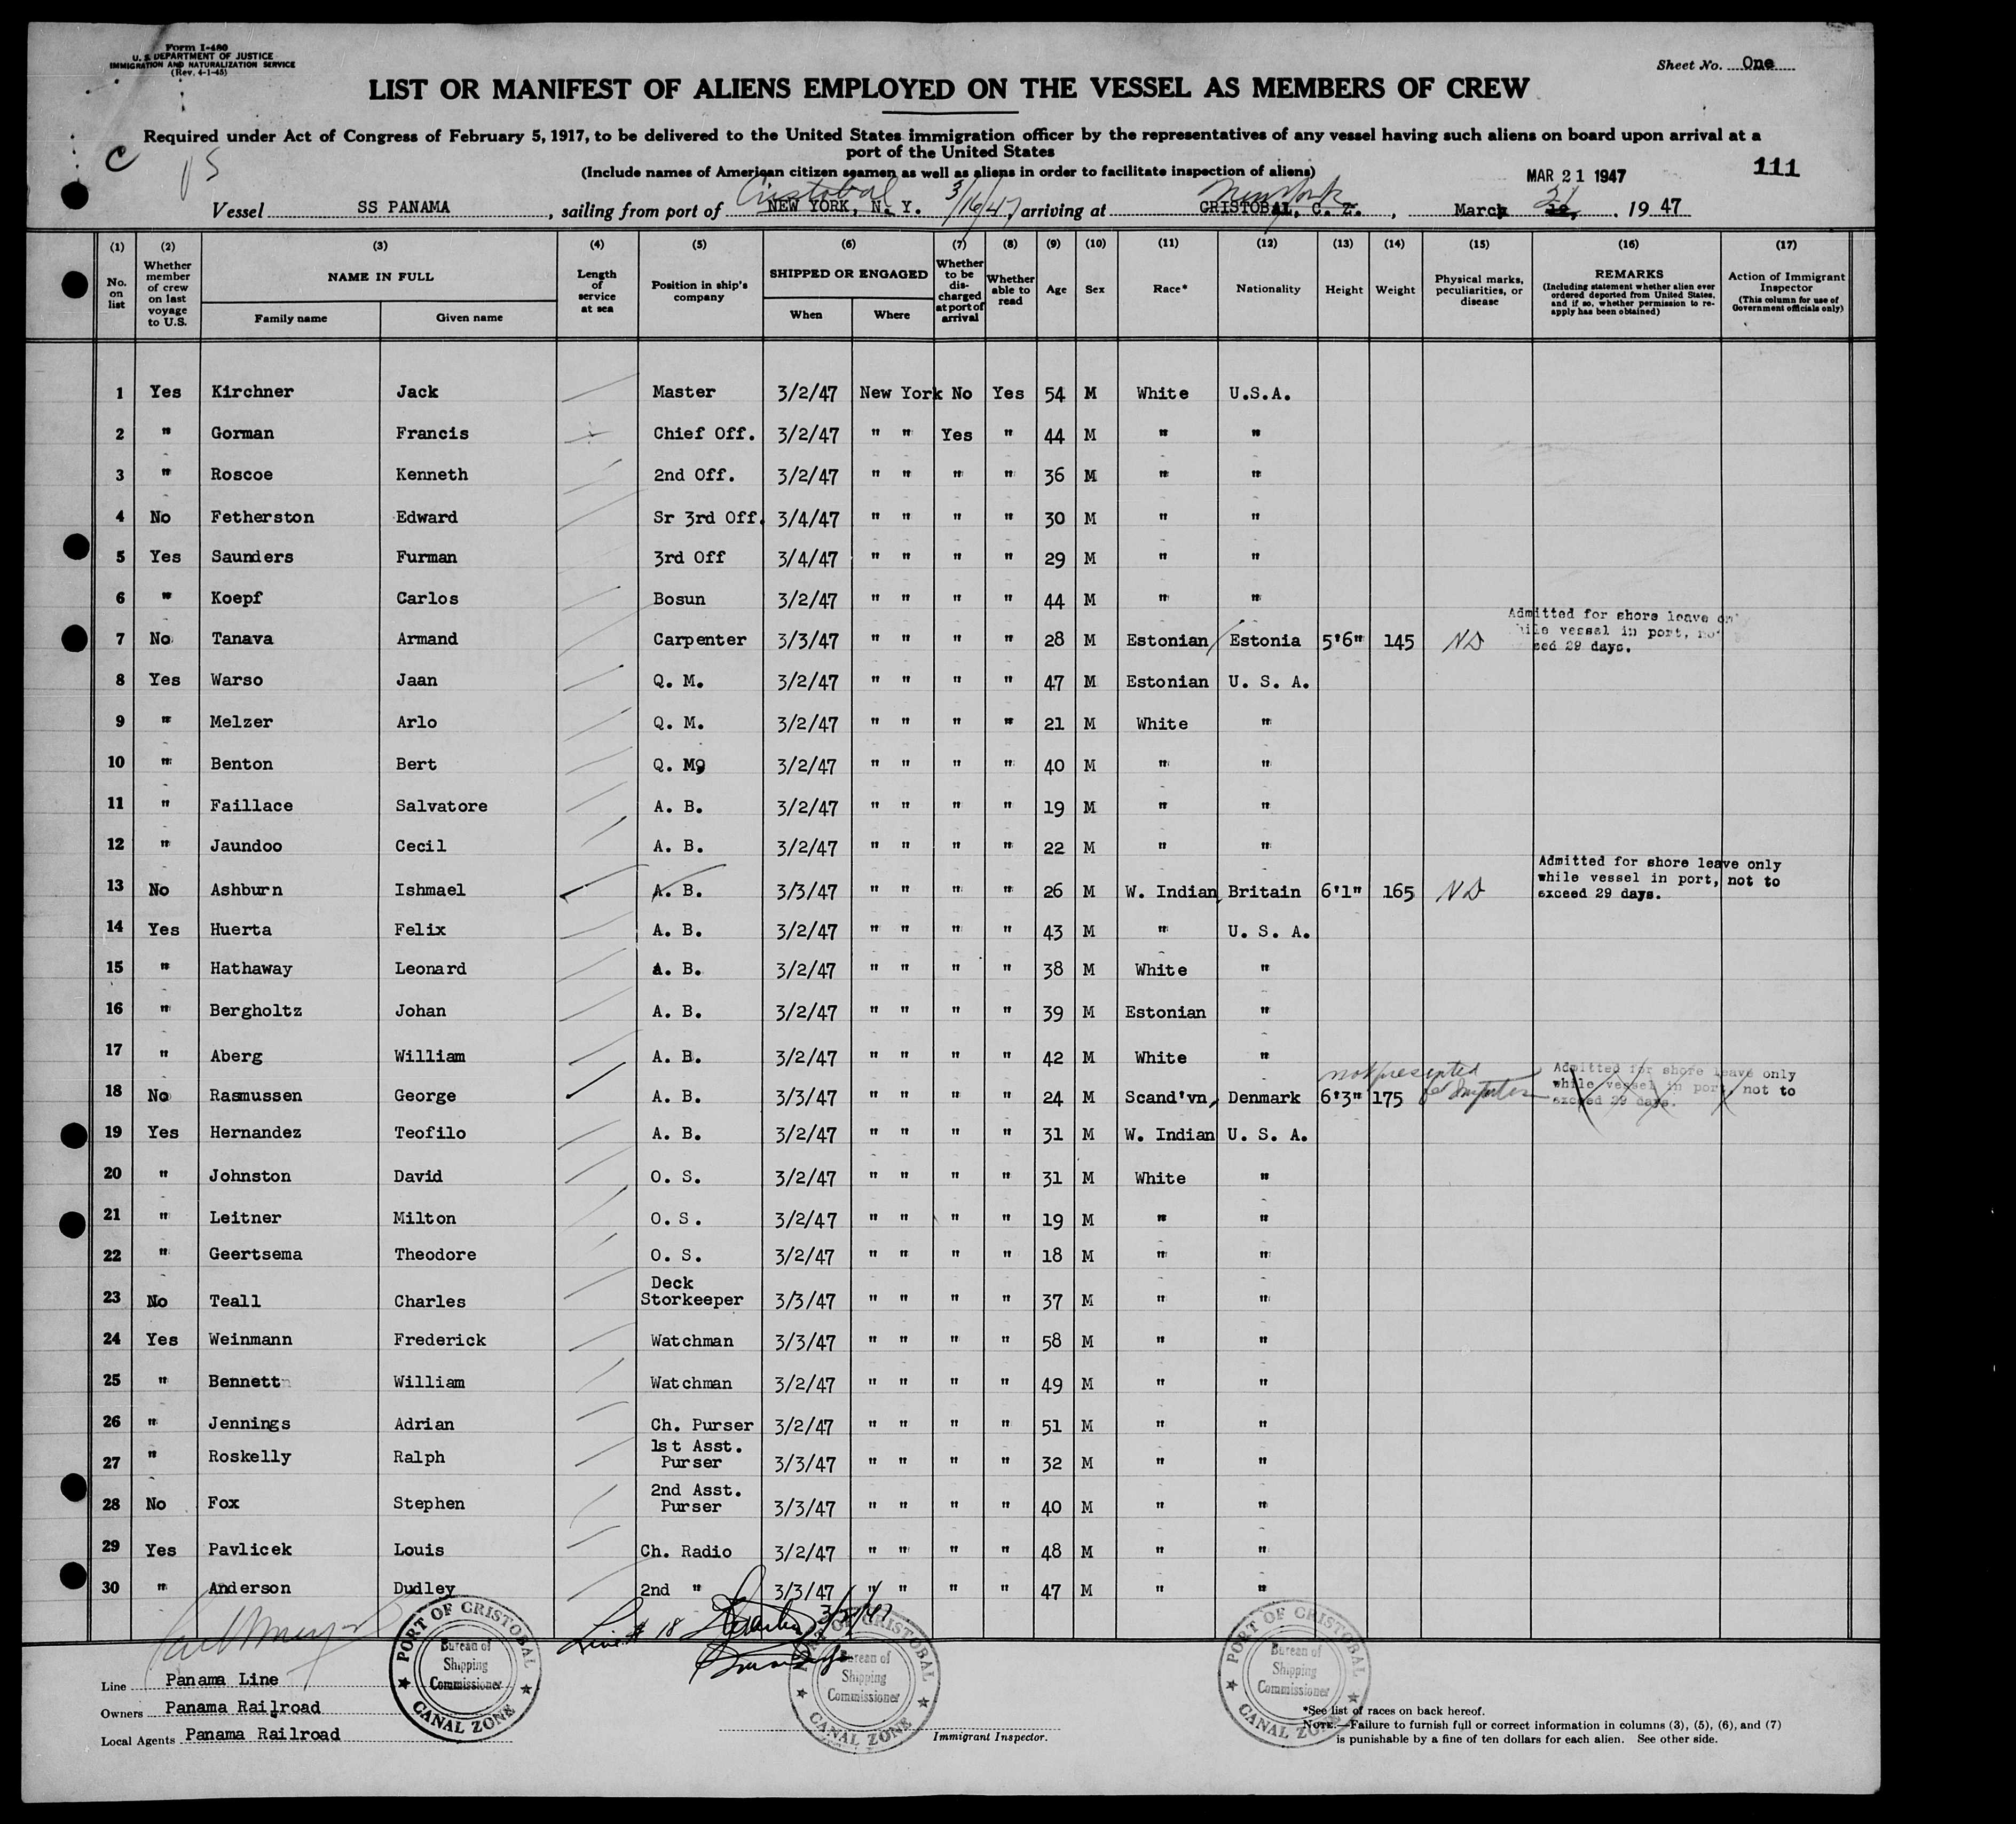 Form I-480
U. S. DEPARTMENT OF JUSTICE
IMMIGRATION AND NATURALIZATION SERVICE
(Rev. 4-1-45)
Sheet No. One
LIST OR MANIFEST OF ALIENS EMPLOYED ON THE VESSEL AS MEMBERS OF CREW
Required under Act of Congress of February 5, 1917, to be delivered to the United States immigration officer by the representatives of any vessel having such aliens on board upon arrival at a
port of the United States
(Include names of American citizen seamen as well as aliens in order to facilitate inspection of aliens)
MAR 21 1947
111
Cristobal 3/16/47 New York 21
Vessel SS PANAMA, sailing from port of NEW YORK, N. Y. arriving at CRISTOBAL, C. Z., March 19 47
(1) (2) (3) (4) (5) (6) (7) (8) (9) (10) (11) (12) (13) (14) (15) (16) (17)
No. on list
Whether member of crew on last voyage to U.S.
NAME IN FULL
Family name Given name
Length of service at sea
Position in ship's company
SHIPPED OR ENGAGED
When Where
Whether to be discharged at port of arrival
Whether able to read
Age
Sex
Race*
Nationality
Height
Weight
Physical marks, peculiarities, or disease
REMARKS
(Including statement whether alien ever ordered deported from United States, and if so, whether permission to reapply has been obtained)
Action of Immigrant Inspector
(This column for use of Government officials only)
1 Yes Kirchner Jack Master 3/2/47 New York No Yes 54 M White U.S.A.
2 " Gorman Francis Chief Off. 3/2/47 " " Yes " 44 M " "
3 " Roscoe Kenneth 2nd Off. 3/2/47 " " " " 36 M " "
4 No Fetherston Edward Sr 3rd Off. 3/4/47 " " " " 30 M " "
5 Yes Saunders Furman 3rd Off 3/4/47 " " " " 29 M " "
6 " Koepf Carlos Bosun 3/2/47 " " " " 44 M " "
7 No Tanava Armand Carpenter 3/3/47 " " " " 28 M Estonian Estonia 5'6" 145 ND Admitted for shore leave while vessel in port, 29 days.
8 Yes Warso Jaan Q. M. 3/2/47 " " " " 47 M Estonian U. S. A.
9 " Melzer Arlo Q. M. 3/2/47 " " " " 21 M White "
10 " Benton Bert Q. M. 3/2/47 " " " " 40 M " "
11 " Faillace Salvatore A. B. 3/2/47 " " " " 19 M " "
12 " Jaundoo Cecil A. B. 3/2/47 " " " " 22 M " "
13 No Ashburn Ishmael A. B. 3/3/47 " " " " 26 M W. Indian Britain 6'1" 165 ND Admitted for shore leave only while vessel in port, not to exceed 29 days.
14 Yes Huerta Felix A. B. 3/2/47 " " " " 43 M " U. S. A.
15 " Hathaway Leonard A. B. 3/2/47 " " " " 38 M White "
16 " Bergholtz Johan A. B. 3/2/47 " " " " 39 M Estonian "
17 " Aberg William A. B. 3/2/47 " " " " 42 M White "
18 No Rasmussen George A. B. 3/3/47 " " " " 24 M Scand'vn, Denmark 6'3" 175 not presented for Admitted for shore leave only while vessel in port not to exceed 29 days.
19 Yes Hernandez Teofilo A. B. 3/2/47 " " " " 31 M W. Indian U. S. A.
20 " Johnston David O. S. 3/2/47 " " " " 31 M White "
21 " Leitner Milton O. S. 3/2/47 " " " " 19 M " "
22 " Geertsema Theodore O. S. 3/2/47 " " " " 18 M " "
23 No Teall Charles Deck Storkeeper 3/3/47 " " " " 37 M " "
24 Yes Weinmann Frederick Watchman 3/3/47 " " " " 58 M " "
25 " Bennett William Watchman 3/2/47 " " " " 49 M " "
26 " Jennings Adrian Ch. Purser 3/2/47 " " " " 51 M " "
27 " Roskelly Ralph 1st Asst. Purser 3/3/47 " " " " 32 M " "
28 No Fox Stephen 2nd Asst. Purser 3/3/47 " " " " 40 M " "
29 Yes Pavlicek Louis Ch. Radio 3/2/47 " " " " 48 M " "
30 " Anderson Dudley 2nd " 3/3/47 " " " " 47 M " "
Line # 18
PORT OF CRISTOBAL Bureau of Shipping Commissioner CANAL ZONE
PORT OF CRISTOBAL Bureau of Shipping Commissioner CANAL ZONE
PORT OF CRISTOBAL Bureau of Shipping Commissioner CANAL ZONE
Line Panama Line
Owners Panama Railroad
Local Agents Panama Railroad
Immigrant Inspector.
*See list of races on back hereof.
NOTE.—Failure to furnish full or correct information in columns (3), (5), (6), and (7)
is punishable by a fine of ten dollars for each alien. See other side.